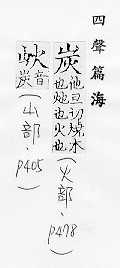 四聲篇海
炭
他旦切燒木
也灺也火也
(火部.P478)
音
炭
(山部.P405)